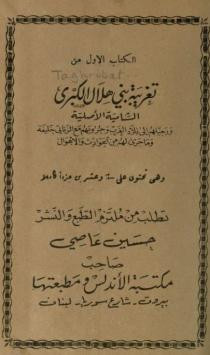 الكتاب الاول من
Taghribat
تغريبة بني هلال الكبرى
الشامية الأصلية
ورحيلهم إلى بلاد الغرب وحروبهم مع الزناتي خليفة
وما جرى لهم من الحوادث والأهوال
وهي تحتوي على ستة وعشرين جزءاً كاملاً
تطلب من ملتزم الطبع والنشر
حسين عاصي
صاحب
مكتبة الأندلس ومطبعتها
بيروت . شارع سوريا . لبنان